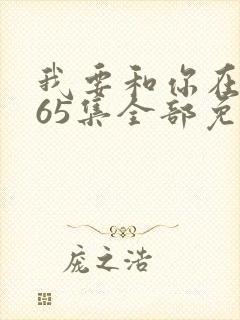 我要和你在
65集全部免
庞之浩